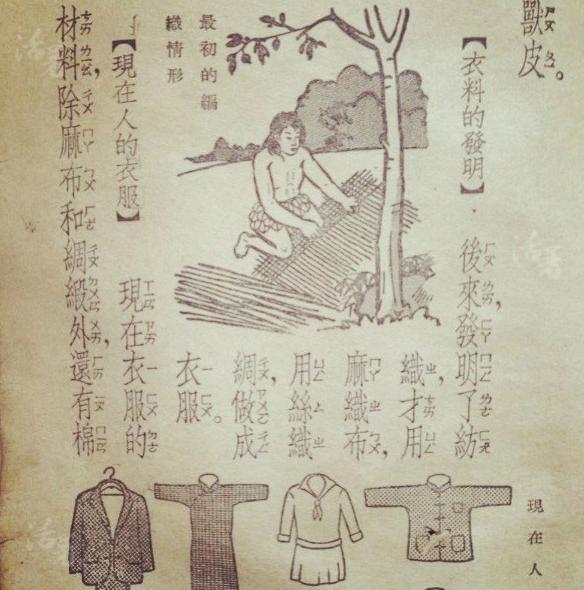 獸皮。
【衣料的發明】
後來，發明了紡
織，才用
麻織布，
用絲織
綢，做成
衣服。
最初的編
織情形
【現在人的衣服】
現在衣服的
材料，除麻布和綢緞外，還有棉
現在人